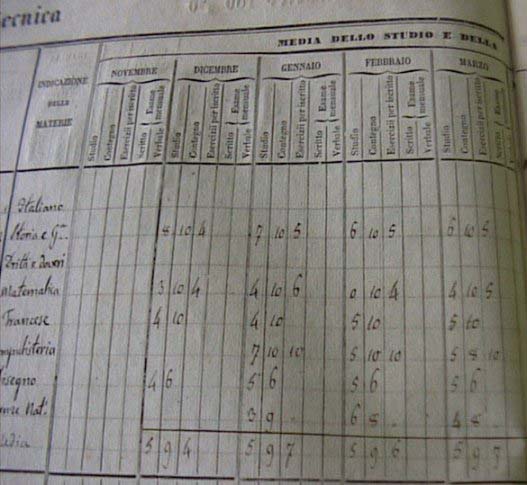 ecnica
MEDIA DELLO STUDIO E DELLA
INDICAZIONE
DELLE
MATERIE
NOVEMBRE DICEMBRE GENNAIO FEBBRAIO MARZO
Studio Contegno Esercizii per iscritto Scritto Verbale Esame mensuale Studio Contegno Esercizii per iscritto Scritto Verbale Esame mensuale Studio Contegno Esercizii per iscritto Scritto Verbale Esame mensuale Studio Contegno Esercizii per iscritto Scritto Verbale Esame mensuale Studio Contegno Esercizii per iscritto Scritto Esame mensuale
Italiano
Storia e G. 8 10 4 7 10 5 6 10 5 6 10 5
Dritti e doveri
Matematica 3 10 4 4 10 6 0 10 4 4 10 5
Francese 4 10 4 10 5 10 5 10
mputisteria 7 10 10 5 10 10 5 8 10
Disegno 4 6 5 6 5 6 5 6
Nat. 3 9 6 8 4 8
edia 5 9 4 5 9 7 5 9 6 5 9